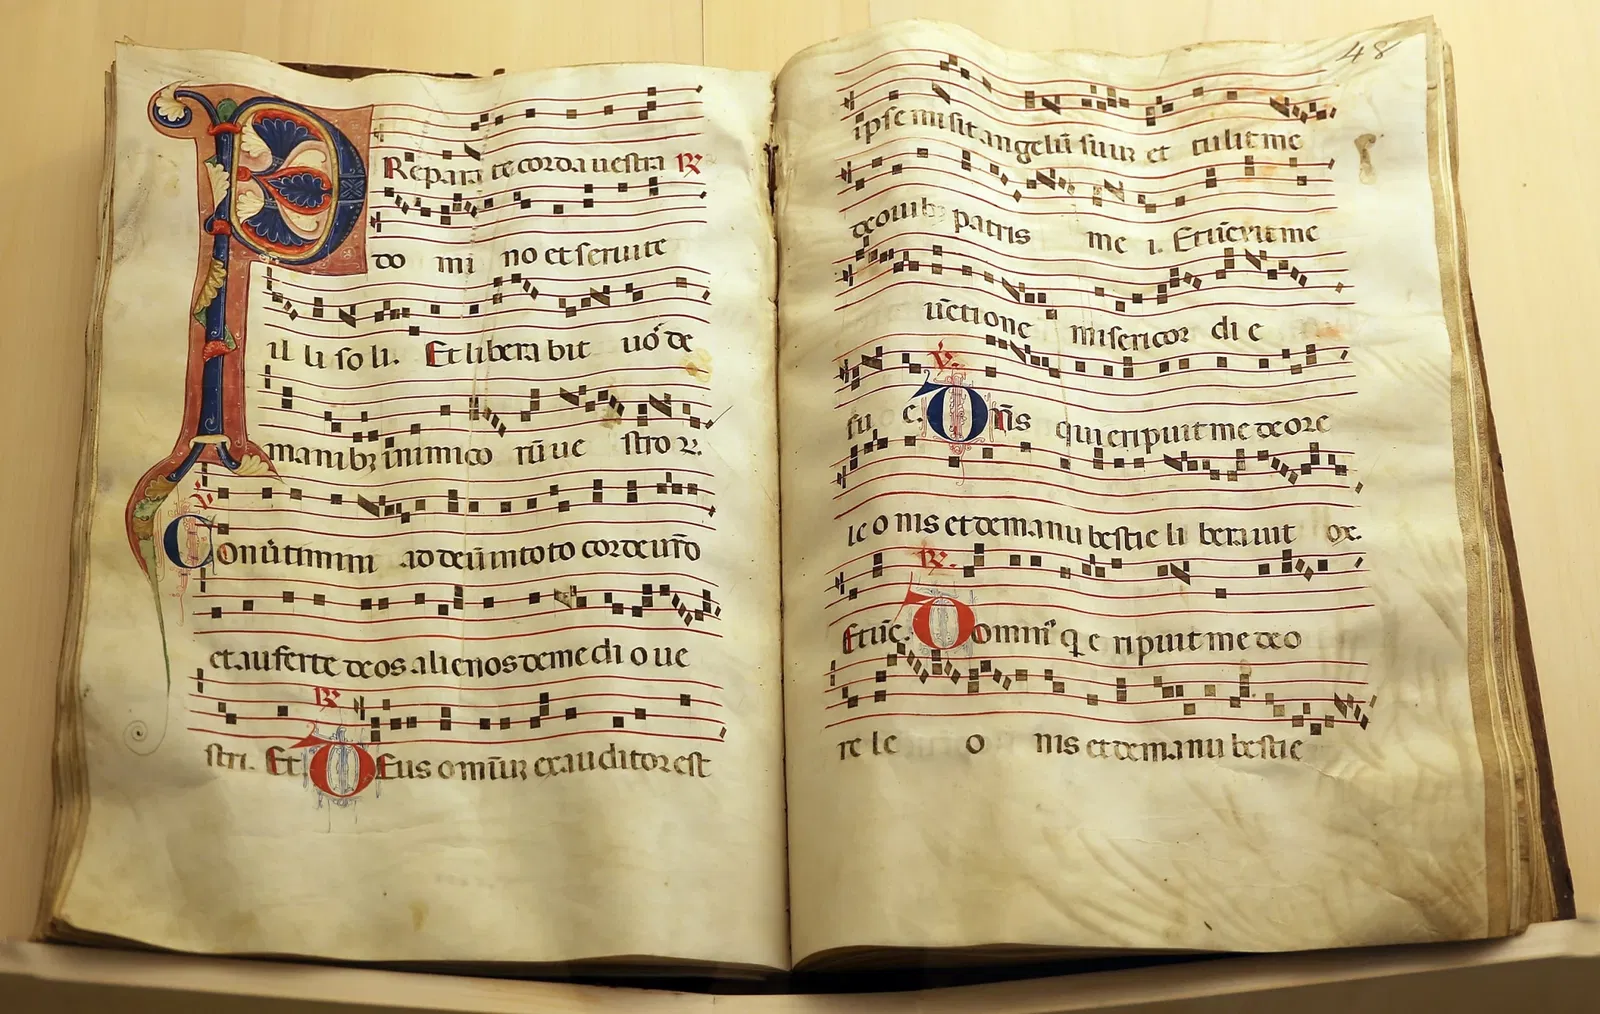 PReparate corda uestra ℟
do mi no et seruite
il li so li. Et libera bit uos de
manibꝫ inimico rū ue stro ꝝ.
℣
Conūtimini ad deū in toto corde uro
et auferte deos alienos de medi o ue
℟
stri. Et. DEus omniū exauditor est
48
ipse misit angelū suū et tulit me
de ouibꝫ patris me i. Et ūcxit me
ūctione misericor di e
℣.
su e. Dns qui eripuit me de ore
le o nis et de manu bestie li berauit
℟.
Et ūc. Domin q e ripuit me de o
re le o nis et de manu bestie